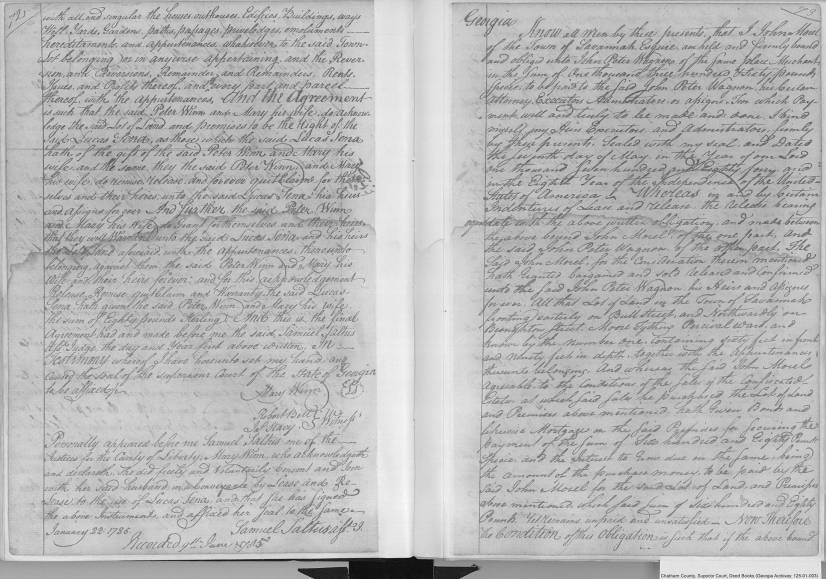 with all and singular the houses outhouses Edifices Buildings, ways
Wells Yards, Gardens, paths, passages, priviledges, emoluments
hereditaments and appurtenances whatsoever to the said Town
Lot belonging or in anywise appertaining and the Rever-
sion and Reversions, Remainder and Remainders, Rents,
Issues and Profits thereof and every part and parcel
thereof with the appurtenances. And the Agreement
is such that the said Peter Winn and Mary his wife do acknow-
ledge the said Lot of Land and premises to be the Right of the
said Lucas Sena, as those which the said Lucas Sena
hath of the gift of the said Peter Winn and Mary his
wife and the same they the said Peter Winn and Mary
his wife do remise release and forever quit claim for them-
selves and their heirs unto the said Lucas Sena his heirs
and assigns forever And further the said Peter Winn
and Mary his Wife do Grant for themselves and their heirs
that they will Warrant unto the said Lucas Sena and his heirs
the Lot Land aforesaid with the Appurtenances thereunto
belonging against them the said Peter Winn and Mary his
Wife and their heirs forever: and for this acknowledgement
Release, Remise quitclaim and Warranty the said Lucas
Sena hath given the said Peter Winn and Mary his wife
the sum of Eighty pounds Sterling And this is the final
Agreement had and made before me the said Samuel Saltus
the day and Year first above written. In
Testimony whereof I have hereunto set my hand and
caused the seal of the Court of the State of Georgia
to be affixed
Mary Winn LS
Robert Bolt
Witness
Personally appeared before me Samuel Saltus one of the
Justices for the County of Liberty, Mary Winn, who acknowledgeth
and declareth She did freely and Voluntarily Consent and Join
with her said husband in a conveyance by Lease and Re-
lease to the use of Lucas Sena, and that she has signed
the above Instruments and affixed her seal to the same
January 22 1785 Samuel Saltus
Recorded 9th June 1785
Georgia
Know all Men by these presents, that I John Morel
of the Town of Savannah Esquire am held and firmly bound
and obliged unto John Peter Wagnon of the same place Merchant
in the Sum of One thousand three hundred & sixty pounds
specie to be paid to the said John Peter Wagnon, his Certain
Attorney Executors Administrators or assigns For which Pay-
ment well and truly to be made and done I bind
myself my Heirs Executors and Administrators firmly
by these presents. Sealed with my seal and Dated
the seventh day of May in the Year of our Lord
One thousand seven hundred and Eighty four and
in the Eighth Year of the Independence of the United
States of America. Whereas in and by Certain
Indentures of Lease and release the release bearing
even date with the above written obligation, and made between
the above bound John Morel of the one part, and
the said John Peter Wagnon of the other part. The
said John Morel for the Consideration therein mentioned
Hath Granted bargained and sold released and confirmed
unto the said John Peter Wagnon his Heirs and Assigns
forever. All that Lot of Land in the Town of Savannah
fronting easterly on Bull street, and Northwardly on
Broughton Street. Moore Tything Percival ward, and
known by the number one containing sixty feet in front
and Ninety feet in depth together with the Appurtenances
thereunto belonging. And whereas the said John Morel
Agreeable to the Conditions of the sales of the Confiscated
Estates at which said sale he purchased the Lot of Land
and Premises above mentioned hath Given Bond and
likewise Mortgage on the said Premises for securing the
Payment of the sum of Six hundred and Eighty Pounds
Specie and the Interest to Grow due on the same being
the amount of the purchase money to be paid by the
said John Morel for the said Lot of Land and Premises
above mentioned which said sum of Six hundred and Eighty
Pounds Yet remains unpaid and unsatisfied. Now Therefore
the Condition of this Obligation is such that if the above bound
Chatham County, Superior Court, Deed Books (Georgia Archives: 125-01-003)